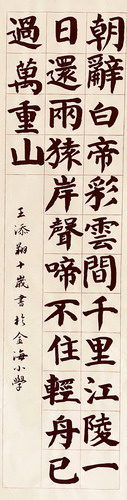 朝辭白帝彩雲間千里江陵一
日還兩猿岸聲啼不住輕舟已
過萬重山
王添翔十歲書於金海小學